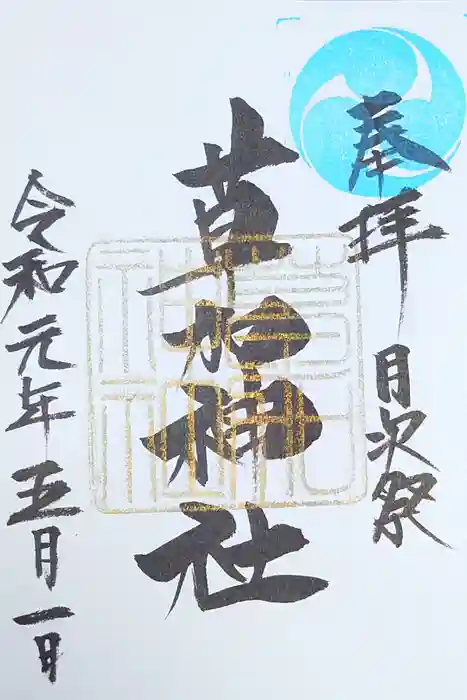 奉拝
月次祭
草始神社
令和元年五月一日